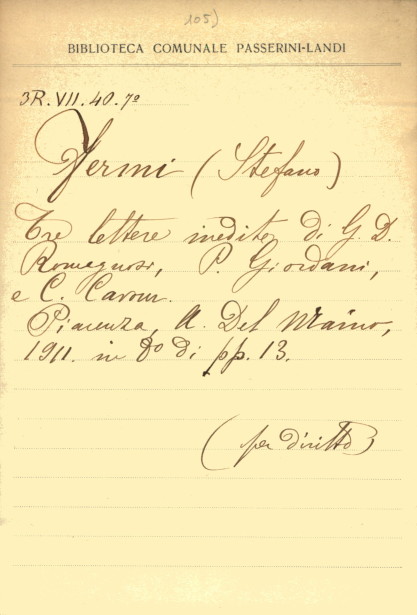 105)
BIBLIOTECA COMUNALE PASSERINI-LANDI
3R.VII.40.7º
Fermi (Stefano)
Tre lettere inedite di G. D.
Romagnosi, P. Giordani,
e C. Cavour.
Piacenza, A. Del Maino,
1911. in 8º di pp. 13.
(per diritto)